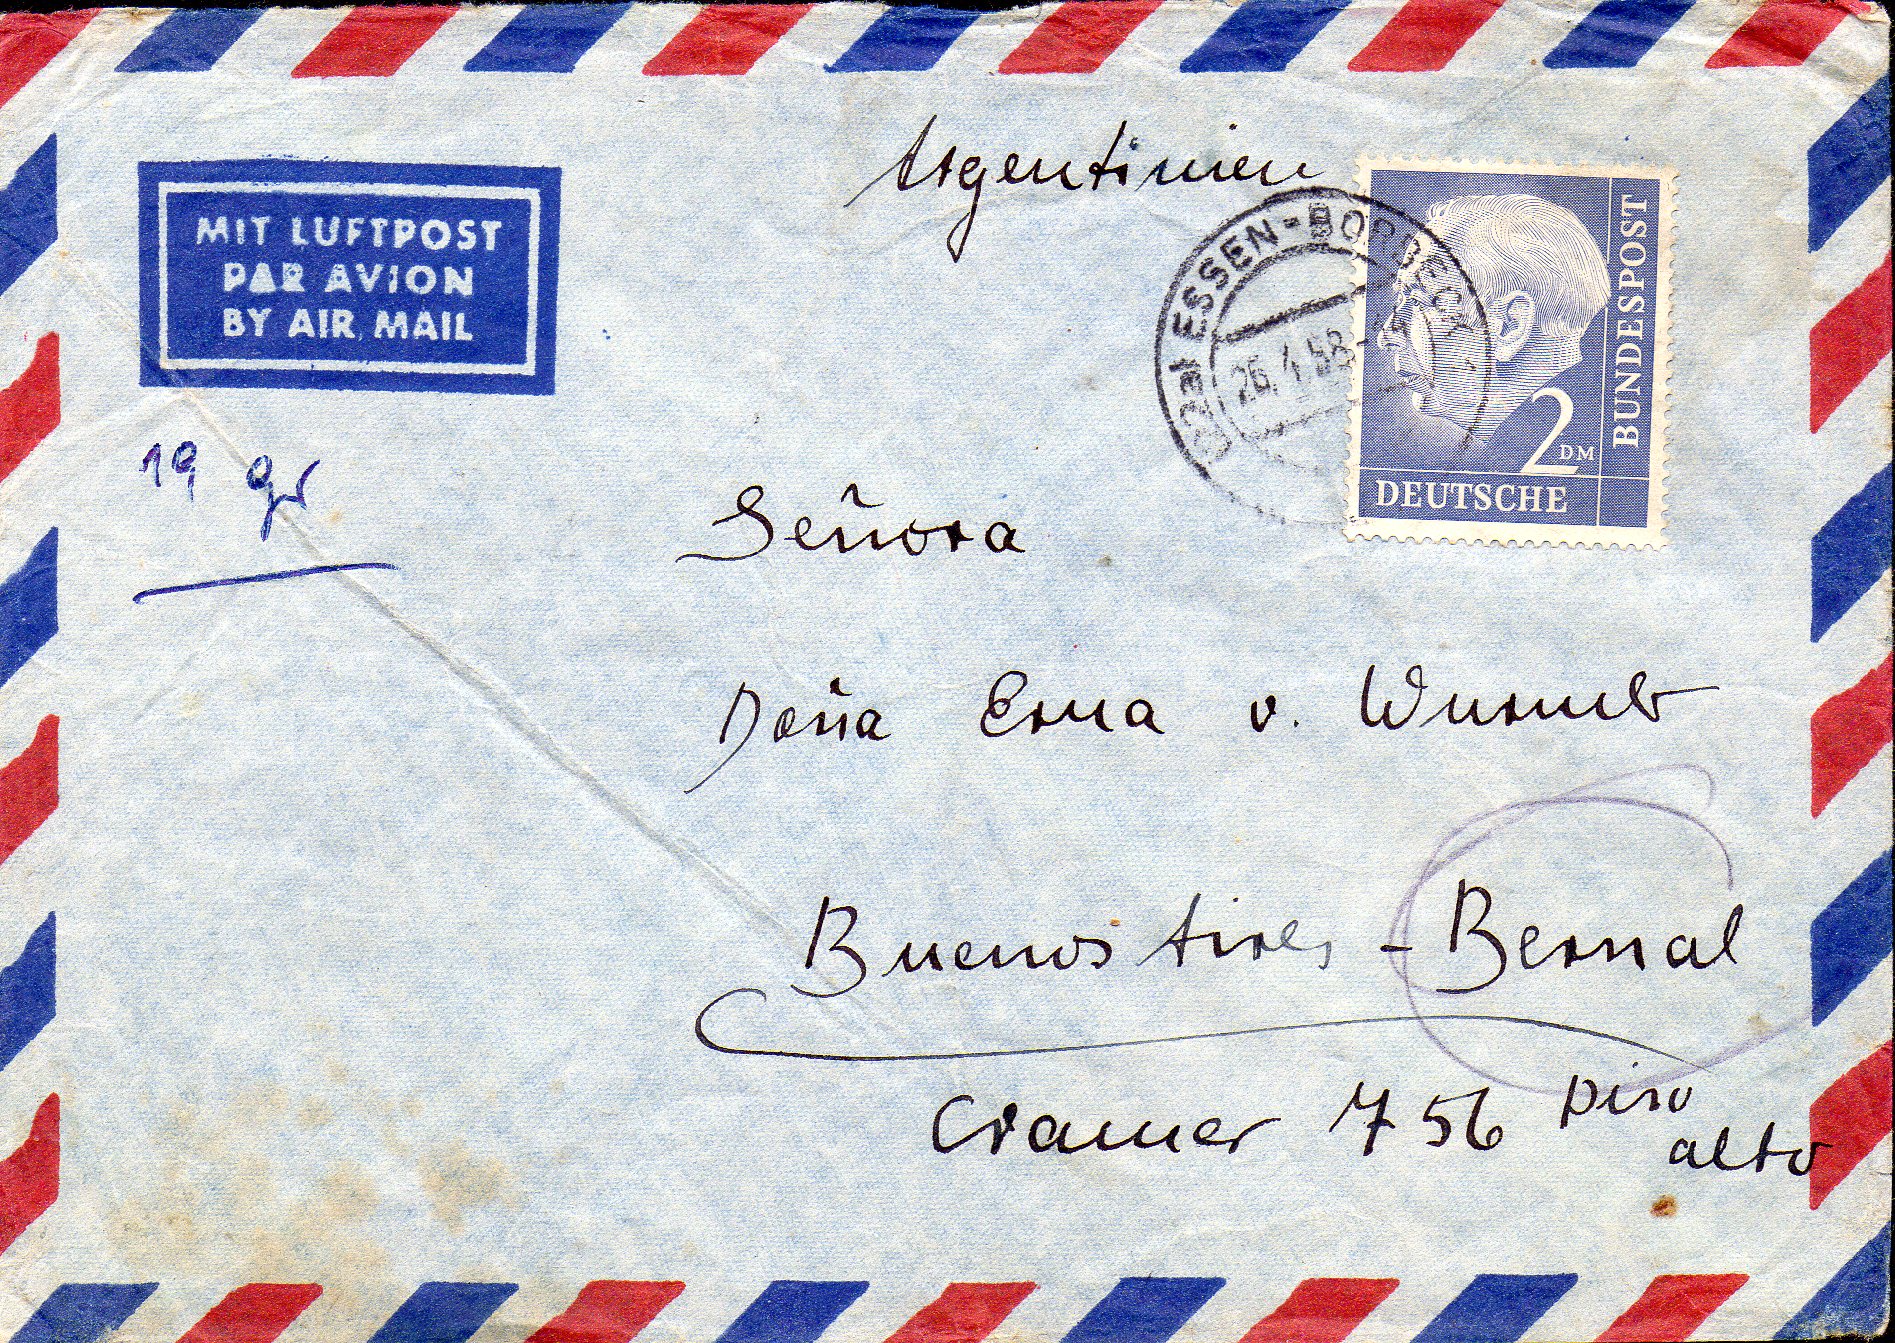 Argentinien
MIT LUFTPOST
PAR AVION
BY AIR MAIL
(22a) ESSEN-BORBECK
26.4.58
2 DM
DEUTSCHE
BUNDESPOST
19 gr
Señora
Doña Erna v. Wurmb
Buenos Aires - Bernal
Cramer 756 piso
alto